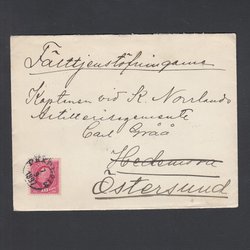 Fälttjenstöfningarna
Kaptenen vid K. Norrlands
Artilleriregemente
Carl Gråå
Hedemora
Östersund